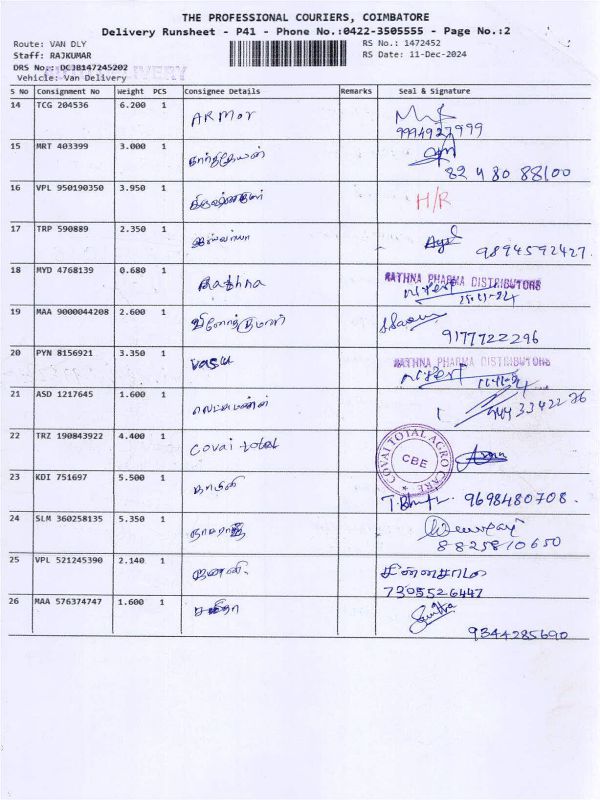 THE PROFESSIONAL COURIERS, COIMBATORE
Delivery Runsheet - P41 - Phone No.:0422-3505555 - Page No.:2
Route: VAN DLY RS No.: 1472452
Staff: RAJKUMAR RS Date: 11-Dec-2024
DRS No.: DCJB147245202 DELIVERY
Vehicle: Van Delivery
S No Consignment No Weight PCS Consignee Details Remarks Seal & Signature
14 TCG 204536 6.200 1 ARMOr
9994927999
15 MRT 403399 3.000 1 கார்த்திகேயன்
82 480 88100
16 VPL 950190350 3.950 1 H/R
17 TRP 590889 2.350 1 ஐஸ்வர்யா
9894592427.
18 MYD 4768139 0.680 1 Rathna RATHNA PHARMA DISTRIBUTORS
19 MAA 9000044208 2.600 1 வினோத்குமார்
9177722296
20 PYN 8156921 3.350 1 Vasu RATHNA PHARMA DISTRIBUTORS
21 ASD 1217645 1.600 1 லட்சுமணன்
944 3342276
22 TRZ 190843922 4.400 1 Covai total COVAI TOTAL AGRO CARE CBE
23 KDI 751697 5.500 1
9698480708.
24 SLM 360258135 5.350 1 நாகராஜ்
8825810650
25 VPL 521245390 2.140 1 சின்னசாமி
7305526447
26 MAA 576374747 1.600 1
9344285690